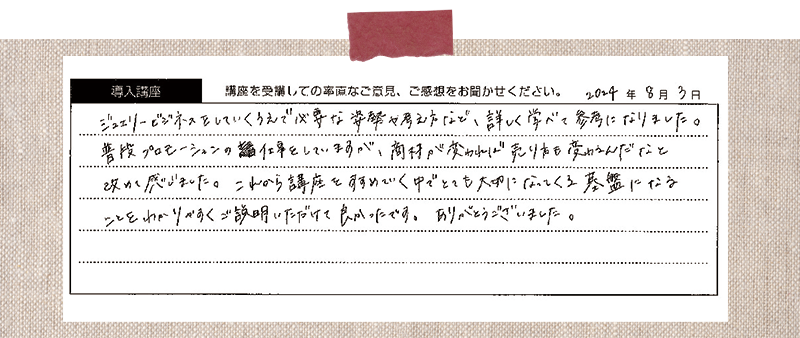 導入講座 講座を受講しての率直なご意見、ご感想をお聞かせください。 2024年8月3日
ジュエリービジネスをしていくうえで必要な姿勢や考え方など、詳しく学べて参考になりました。
普段プロモーションの仕事をしていますが、商材が変われば売り方も変わるんだなと
改めて感じました。これから講座をすすめていく中でとても大切になってくる基盤になる
ことをわかりやすくご説明いただけて良かったです。ありがとうございました。